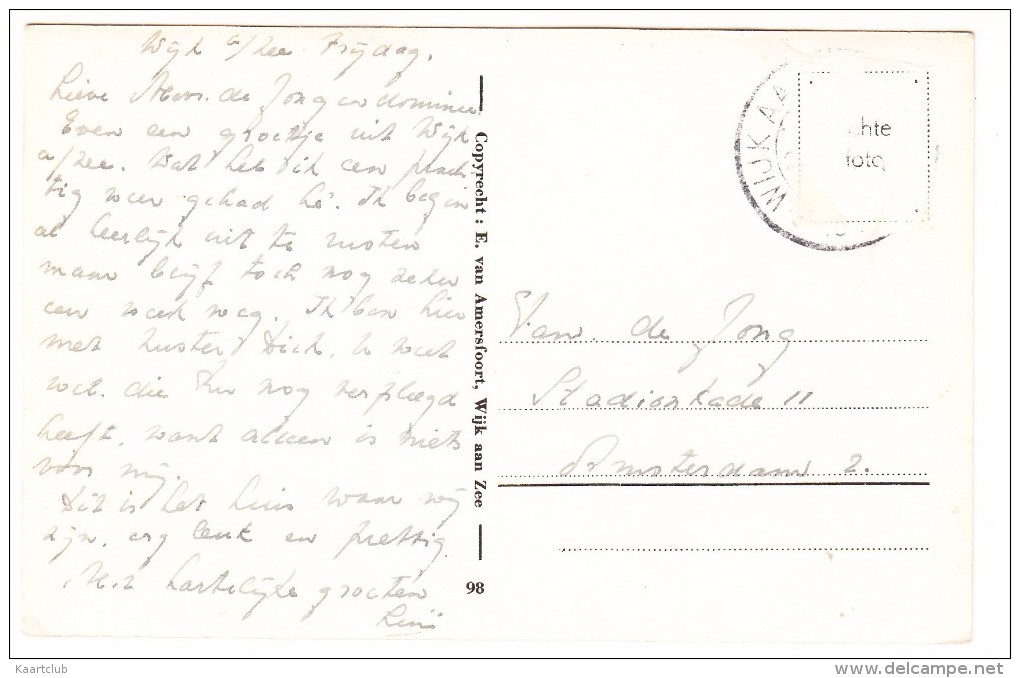 Wijk a/Zee Frijdag.
Lieve Mevr. de Jong en dominee
Even een groetje uit Wijk
a/Zee. Wat heb ik een prach
tig weer gehad hè. Ik begin
al heerlijk uit te rusten
maar blijf toch nog zeker
een week weg. Ik ben hier
met zuster Dick. U weet
wel. die nog verpleegd
heeft, want alleen is niets
voor mij.
Dit is het huis waar wij
zijn. erg leuk en prettig.
Met hartelijke groeten
Copyrecht: E. van Amersfoort, Wijk aan Zee
98
WIJK AA
chte
foto
Fam. de Jong
Stadionkade 11
Amsterdam Z.
Kaartclub
www.delcampe.net